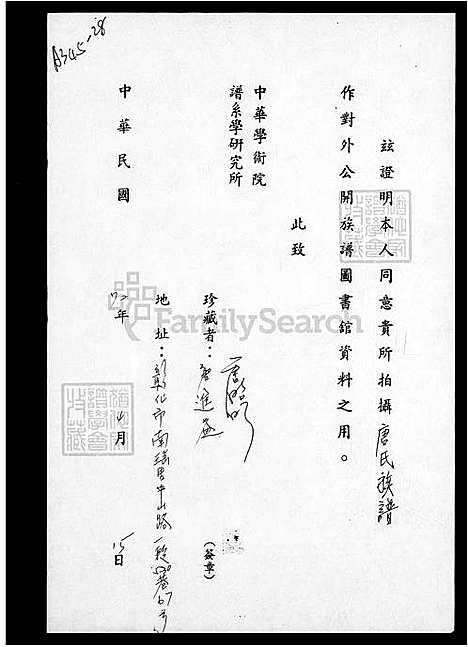 A345-28
玆證明本人同意貴所拍攝唐氏族譜
作對外公開族譜圖書館資料之用。
此致
中華學術院
譜系學研究所
珍藏者：唐進益
（簽章）
地址：彰化市南瑤里中山路一段530巷67号
中華民國
72年
4月
15日
FamilySearch